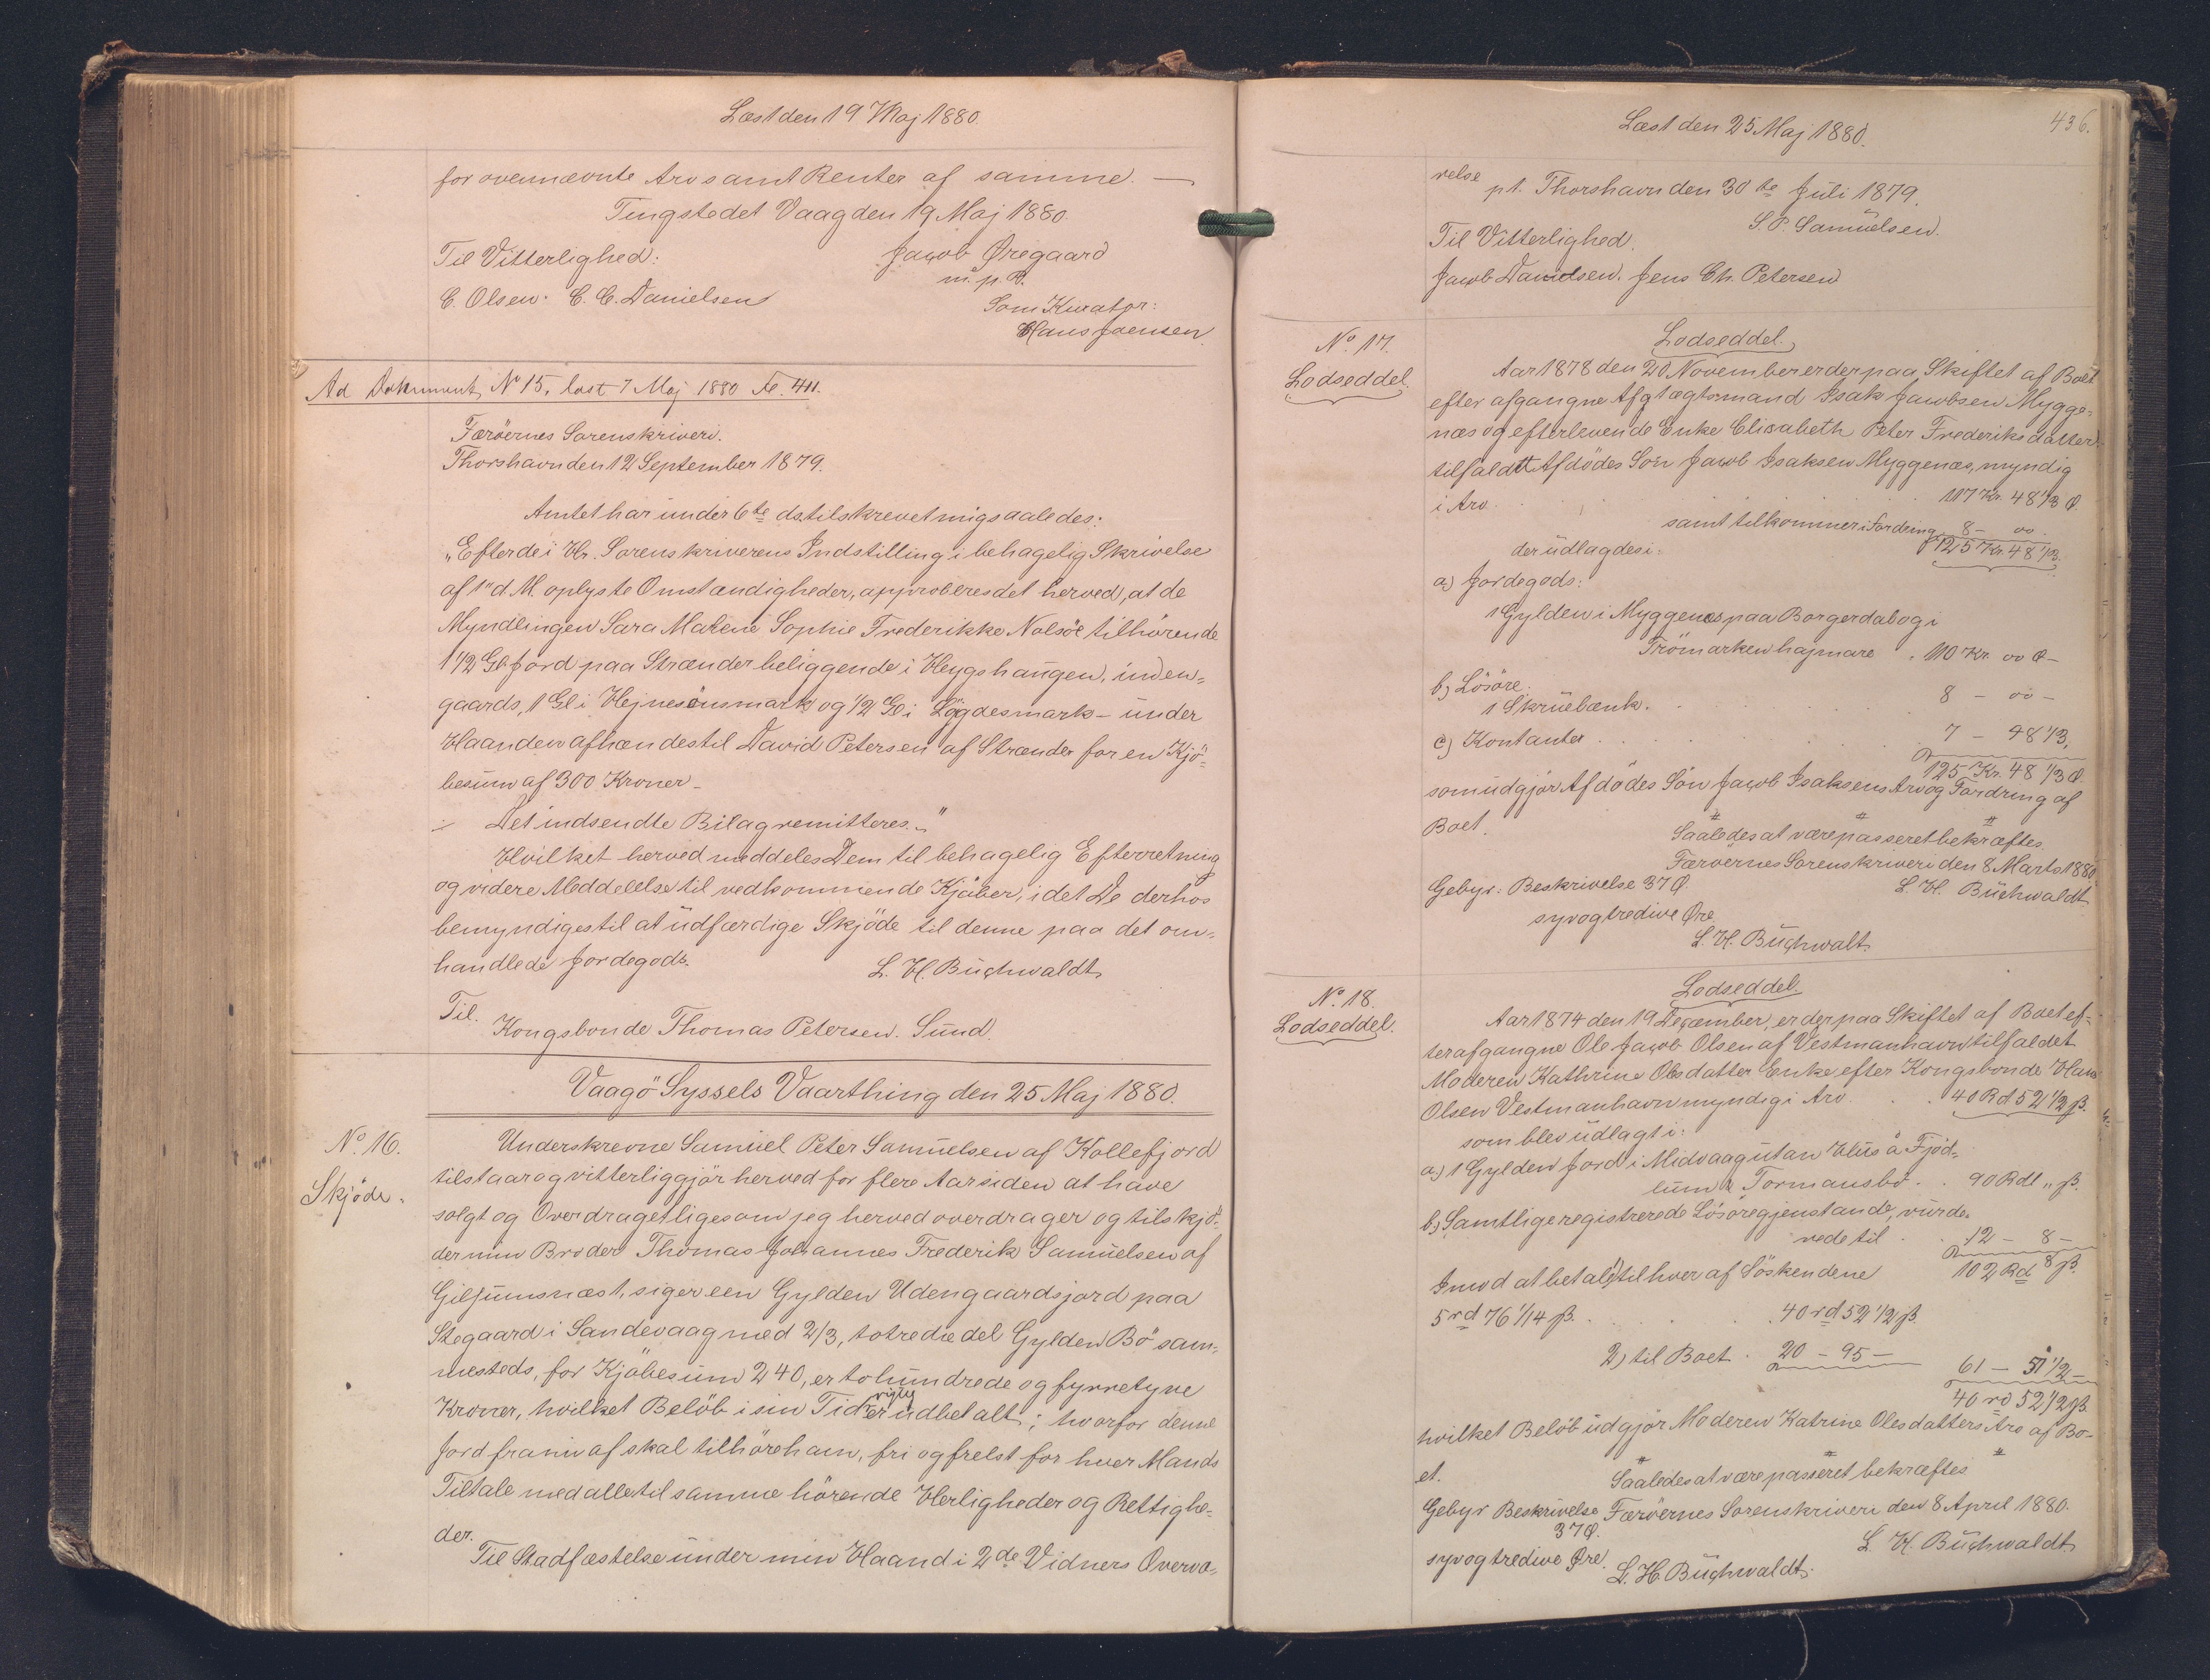 Læst den 19 Maj 1880.
for ovennævnte Arv samt Renter af samme. —
Tingstedet Vaag den 19 Maj 1880.
Til Vitterlighed:
Jacob Øregaard
m. p. P.
C. Olsen. C. C. Danielsen
Som Kurator:
Hans Joensen.
Ad Dokument No 15, læst 7 Maj 1880 Fo. 411.
Færöernes Sorenskriveri.
Thorshavn den 12 September 1879.
Amtet har under 6te ds. tilskrevet mig saaledes:
"Efter de i Hr. Sorenskriverens Indstilling i behagelig Skrivelse
af 1" d. M. oplyste Omstændigheder, approberes det herved, at de
Myndlingen Sara Malene Sophie Frederikke Nolsöe tilhörende
1 1/2 Gl Jord paa Strænder beliggende i Heygshaugen, inden-
gaards, 1 Gl i Hejnesönsmark og 1/2 Gl i Lögdesmark – under
Haanden afhændes til David Petersen af Strænder for en Kjö-
besum af 300 Kroner –
Det indsendte Bilag remitteres."
Hvilket herved meddeles Dem til behagelig Efterretning
og videre Meddelelse til vedkommende Kjöber, idet De derhos
bemyndiges til at udfærdige Skjöde til denne paa det om-
handlede Jordegods.
L. H. Buchwaldt.
Til.
Kongsbonde Thomas Petersen. Sund.
Vaagö Syssels Vaarthing den 25 Maj 1880.
No 16.
Skjöde.
Underskrevne Samuel Peter Samuelsen af Kollefjord
tilstaar og vitterliggjör herved for flere Aar siden at have
solgt og Overdraget ligesom jeg herved overdrager og tilskjö-
der min Broder Thomas Johannes Frederik Samuelsen af
Giljumsnæst, siger een Gylden Udengaardsjord paa
Stegaard i Sandevaag med 2/3, totredie del Gylden Bö sam-
mesteds, for Kjöbesum 240, er tohundrede og fyrretyve
Kroner, hvilket Belöb i sin Tid er rigtig udbetalt; hvorfor denne
Jord fra nu af skal tilhöre ham, fri og frelst for hver Mands
Tiltale med alle til samme hörende Herligheder og Rettighe-
der.
Til Stadfæstelse under min Haand i 2de Vidners Overvæ-
436.
Læst den 25 Maj 1880.
relse
pt. Thorshavn den 30te Juli 1879.
S. P. Samuelsen.
Til Vitterlighed.
Jacob Danielsen. Jens Ch. Petersen
No. 17.
Lodseddel.
Lodseddel.
Aar 1878 den 20 November er der paa Skiftet af Boet
efter afgangne Aftægtsmand Isak Jacobsen Mygge-
næs og efterlevende Enke Elisabeth Peter Frederiksdatter
tilfaldt Afdödes Sön Jacob Isaksen Myggenæs, myndig
i Arv . . . 117 Kr. 48 1/3 Ø.
samt tilkommer i Fordring 8 – 00.
125 Kr. 48 1/3.
der udlagdes i:
a) Jordegods:
1 Gylden i Myggenæs paa Borgerdalog i
Trömarken hajmare . 110 Kr. 00 Ø –
b) Lösöre.
1 Skruebænk. . . 8 – 00 –
c) Kontanter . . . 7 – 48 1/3.
125 Kr. 48 1/3 Ø.
som udgjör Afdödes Sön Jacob Isaksens Arv og Fordring af
Boet.
Saaledes at være passeret bekræftes.
Færöernes Sorenskriveri den 8 Marts 1880
Gebyr: Beskrivelse 37 Ø.
L. H. Buchwaldt
syvogtredive Øre.
L. H. Buchwalt.
No. 18.
Lodseddel.
Lodseddel.
Aar 1874 den 19 December, er der paa Skiftet af Boet ef-
ter afgangne Ole Jacob Olsen af Vestmanhavn tilfaldet
Moderen Kathrine Olesdatter Enke efter Kongsbonde Hans
Olsen Vestmanhavn myndig i Arv . . 40 Rd 52 1/2 ß.
som blev udlagt i:
a) 1 Gylden Jord i Midvaag utan Hus å Fjöd-
lum & Tormansbö . . 90 Rdl „ ß.
b) Samtlige registrerede Lösöregjenstande, vurde-
rede til . . 12 – 8 –
102 Rd 8 ß.
Imod at betale 1) til hver af Söskendene
5 rd 76 1/14 ß. . . . 40 rd 52 1/2 ß.
2) til Boet . 20 – 95 –
61 – 51 1/2 –
40 rd 52 1/2 ß.
hvilket Belöb udgjör Moderen Katrine Olesdatters Arv af Bo-
et.
Saaledes at være passeret bekræftes
Gebyr Beskrivelse Færöernes Sorenskriveri den 8 April 1880.
37 Ø.
L. H. Buchwaldt.
syvogtredive Øre.
L. H. Buchwaldt.